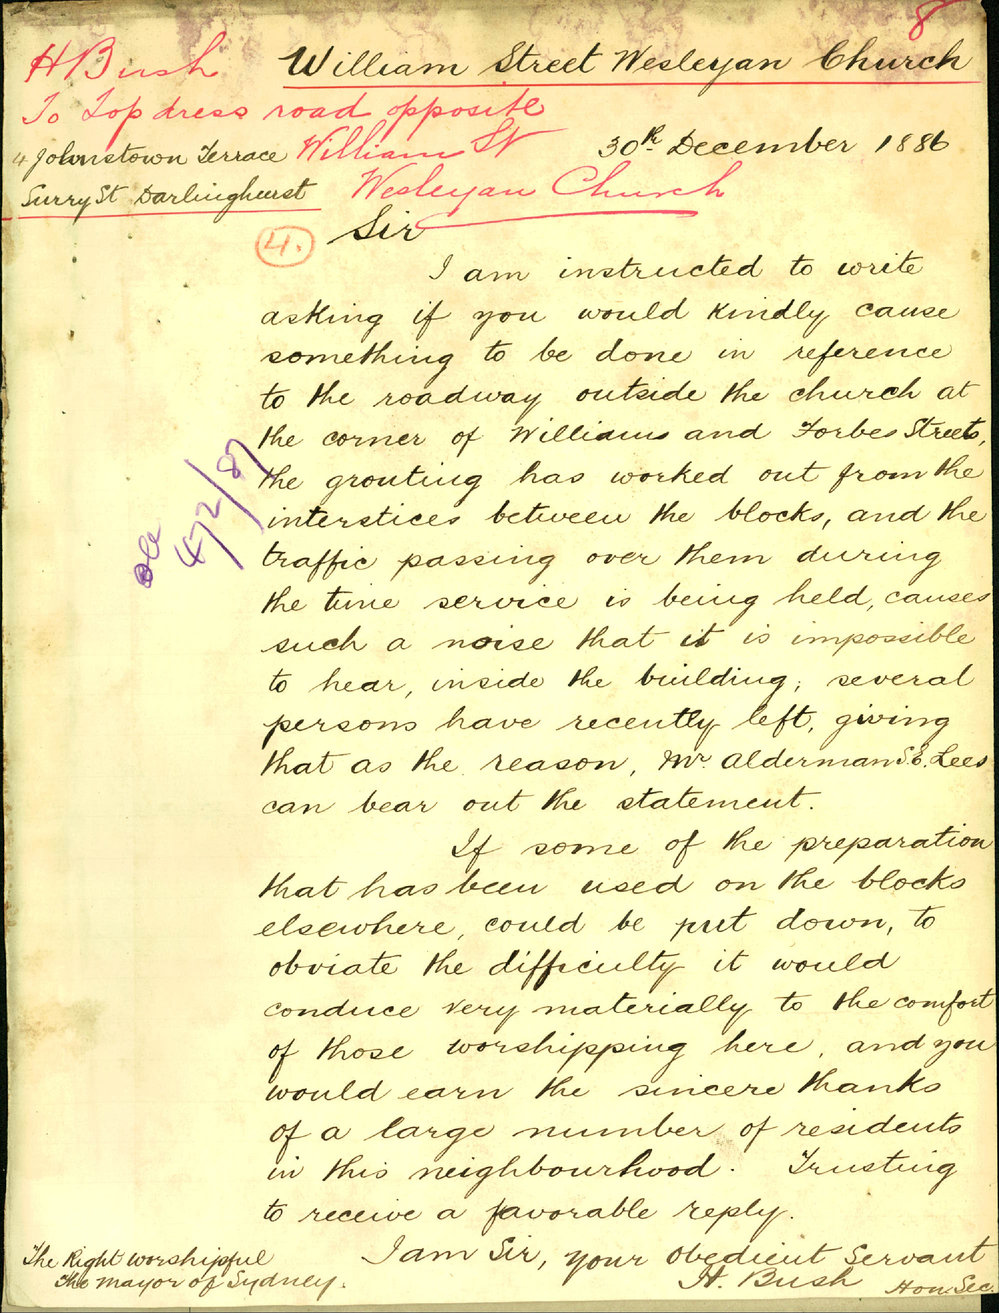 8
H Bush
William Street Wesleyan Church
To Top dress road opposite
William St
Wesleyan Church
4 Johnstown Terrace
Surry St Darlinghurst
30th December 1886
4.
Sir
I am instructed to write
asking if you would kindly cause
something to be done in reference
to the roadway outside the church at
the corner of Williams and Forbes Streets,
the grouting has worked out from the
interstices between the blocks, and the
traffic passing over them during
the time service is being held, causes
such a noise that it is impossible
to hear, inside the building; several
persons have recently left, giving
that as the reason, Mr. Alderman S.E. Lees
can bear out the statement.
472/87
If some of the preparation
that has been used on the blocks
elsewhere, could be put down, to
obviate the difficulty it would
conduce very materially to the comfort
of those worshipping here, and you
would earn the sincere thanks
of a large number of residents
in this neighbourhood. Trusting
to receive a favorable reply.
I am Sir, your obedient Servant
H. Bush Hon. Sec.
The Right Worshipful
the Mayor of Sydney.